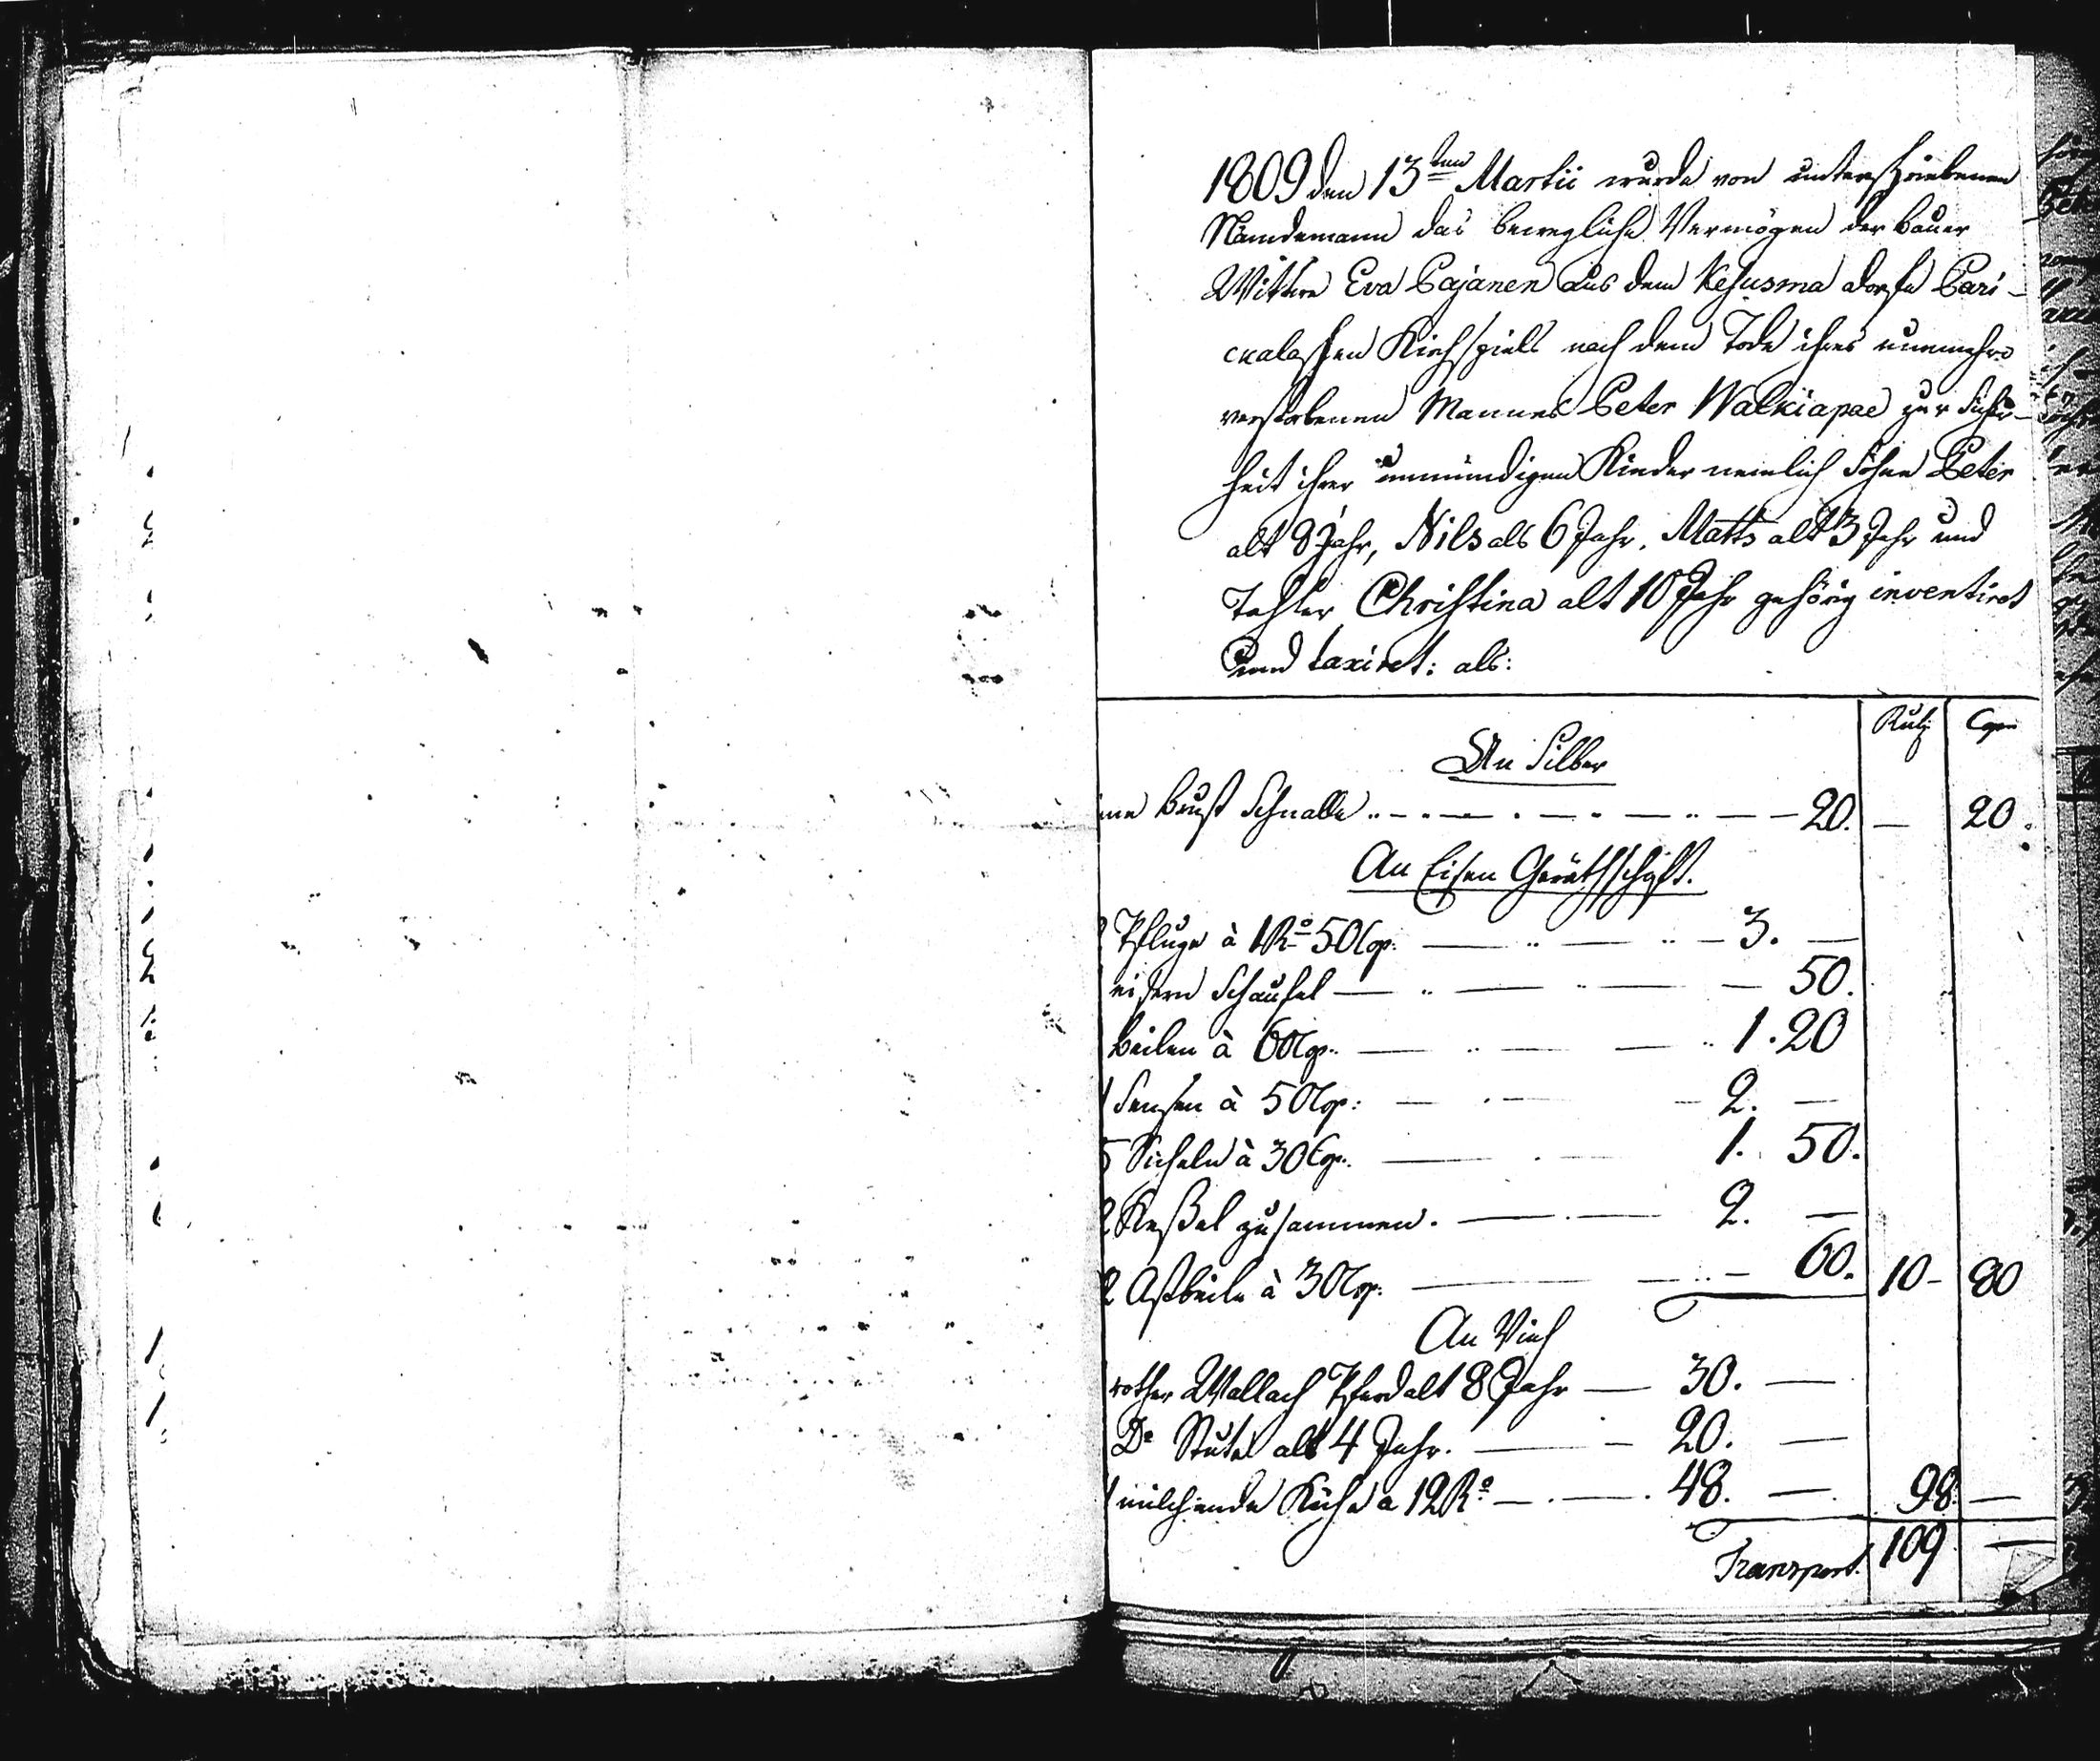 1809 den 13ten Martii wurde von unterschriebenen
Nämdemann das bewegliche Vermögen der bauer
Wittwe Eva Pajanen aus dem Kesusma dorfe Pari-
ckalaschen Kirchspiels nach dem Tode ihres nunmehro
verstorbenen Mannes Peter Walkiapae zur Sicher-
heit ihrer unmündigen Kinder nemlich Söhne Peter
alt 8 Jahr, Nils alt 6 Jahr, Matts alt 3 Jahr und
Tochter Christina alt 10 Jahr gehörig inventiret
und taxiret: als:
Rub Cop
An Silber
ine brust Schnalle 20. — 20.
An Eisen Geräthschaft.
2 Pfluge à 1 Ro 50 Cop: 3. —
eisern Schaufel 50.
beilen à 60 Cop: 1. 20
Sensen à 50 Cop: 2. —
5 Sicheln à 30 Cop: 1. 50.
2 Keßel zusammen. 2. —
2 Astbeile à 30 Cop: 60. 10 - 80
An Vieh
rother Wallach Pferd alt 8 Jahr — 30. —
Do Stute alt 4 Jahr. 20. —
milchende Kühe a 12 Ro 48. — 98. —
Transport. 109 —